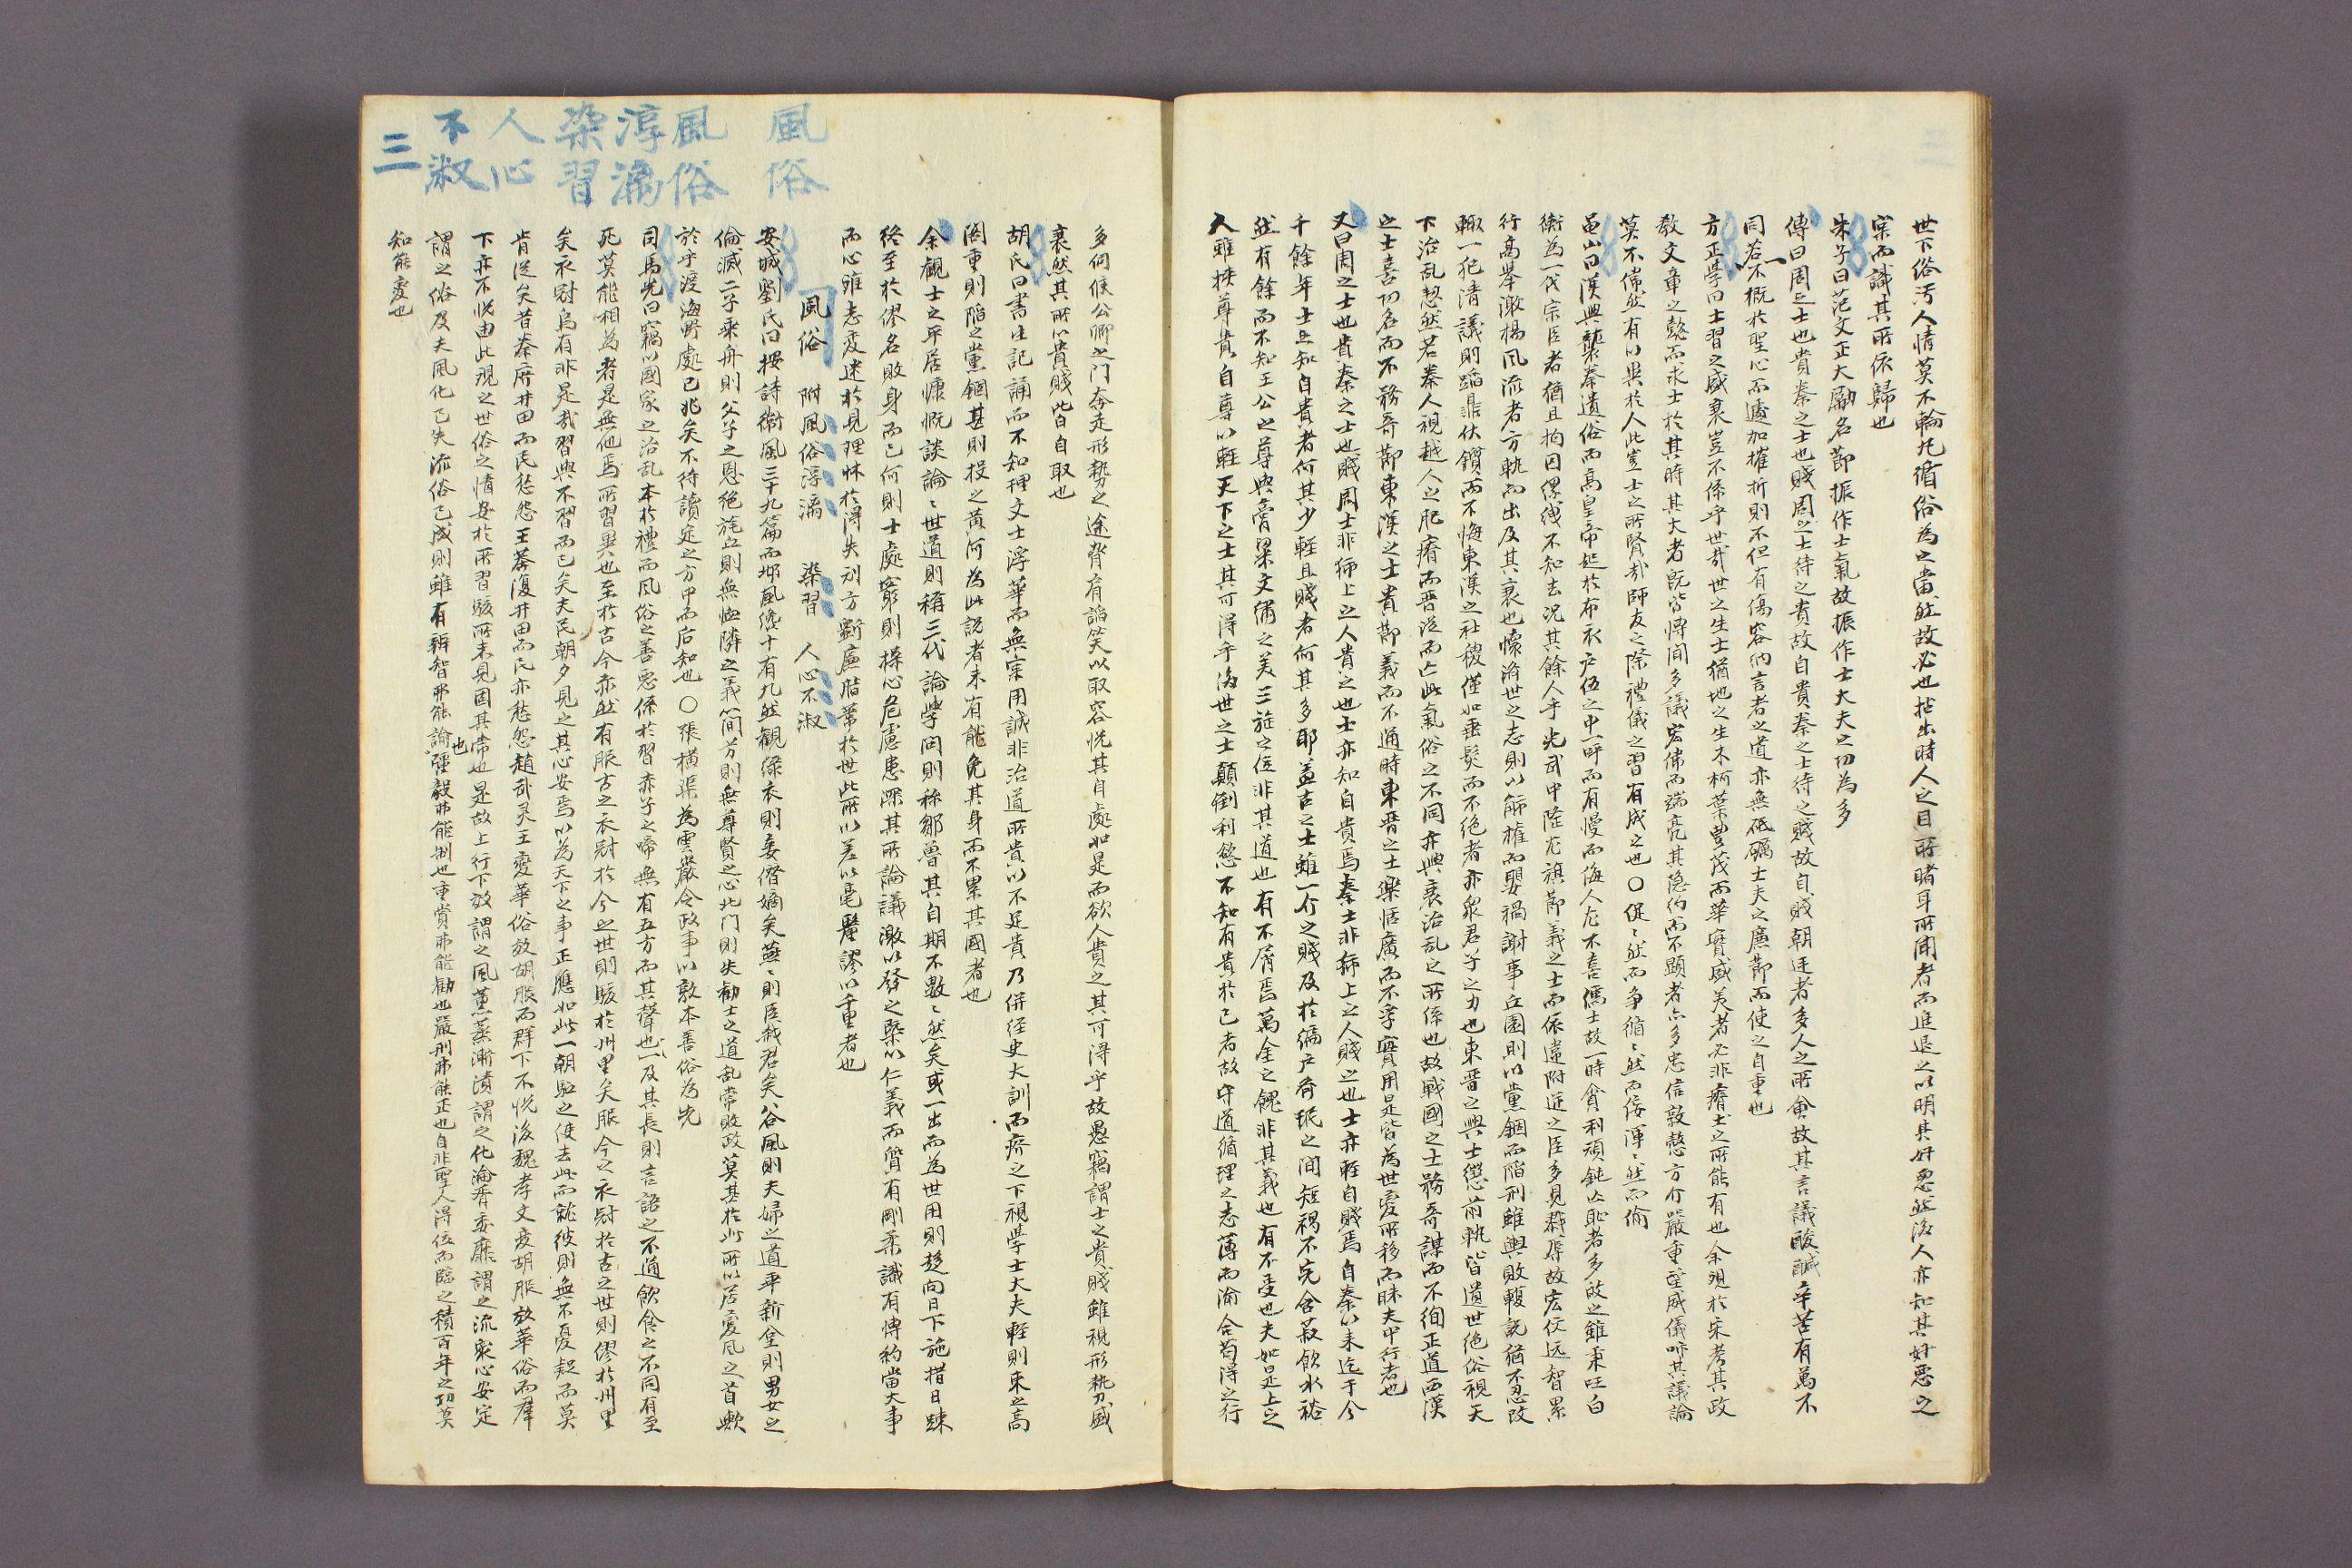 世下俗汚人情莫不輪尤循俗為之當然故必也拈出時人之目所睹耳所聞者而進退之以明其好惡然後人亦知其好惡之
宗而識其所依歸也
朱子曰范文正大勵名節振作士氣故振作士大夫之功為多
傳曰周之士也貴秦之士也賤周以士待之貴故自貴秦之士待之賤故自賤朝廷者多人之所會故其言議酸鹹辛苦有萬不
同若不槪於聖心而遽加摧折則不但有傷容納言者之道亦無砥礪士夫之廉節而使之自重也
方正學曰士習之盛衰豈不係乎世哉世之生士猶地之生木柯葉豐茂而華實盛美者必非瘠土之所能有也余觀於宋考其政
敎文章之懿而求士於其時其大者旣皆博聞多議宏偉而端亮其隱約而不顯者亦多忠信敦慤方介嚴重望威儀 其議論
莫不偉然有以異於人此豈士之所賢哉師友之際禮儀之習有成之也〇促〻然而爭循〻然而佞渾〻然而偷
曰漢興襲秦遺俗而高皇帝起於布衣戶伍之中一呼而有慢而侮人尤不喜儒士故一時貪利頑鈍亡恥者多歸之雖秉旺白
衡為一代宗臣者猶且拘囚縲絏不知去況其餘人乎光武中隆尤旌節義之士而依違附逆之臣多見 辱故宏仗远智累
行高擧激揚風流者方軌而出及其衰也懷濟世之志則以觧權而嬰禍謝事丘園則以黨錮而陷刑雖與敗轍說猶不忍改
輒一犯淸議則蹈鼎伏鑕而不悔東漢之社稷僅如垂髮而不絶者亦衆君子之力也東晋之興士懲前執皆遺世絶俗視天
下治乱愸然若秦人視越人之肥瘠而晋從而亡此氣俗之不同亦與衰治乱之所係也故戰國之士務奇謀而不徇正道西漢
之士喜功名而不務奇節東漢之士貴節義而不通時東晋之士樂恬廣而不孚實用是皆為世変所移而昧夫中行者也
又曰周之士也貴秦之士也賤周士非獨上之人貴之也士亦知自貴焉秦士非獨上之人賤之也士亦輕自賤焉自秦以来迄于今
千餘年士之知自貴者何其少輕且賤者何其多耶盖古之士雖一介之賤及於編戶齊珉之間短褐不完含菽飲水裕
然有餘而不知王公之尊與膏粱文繡之美三旌之位非其道也有不屑焉萬金之餽非其義也有不受也夫如是上之
人雖挾尊貴自尊以輕天下之士其可得乎後世之士顚倒利慾不知有貴於己者故守道循理之志薄而渝合苟得之行
多伺候公卿之門奔走形勢之途脅肩諂笑以取容悅其自處如是而欲人貴之其可得乎故愚竊謂士之貴賤雖視形埶力盛
衰然其所以貴賤皆自取也
胡氏曰書生記誦而不知理文士浮華而無宗用誠非治道所貴以不足貴乃併徑史大訓而疥之下視學士大夫輕則束之高
閣重則陷之黨錮甚則投之黃河為此說者未有能免其身而不累其國者也
余觀士之平居慷慨談論〻世道則稱三代論學問則称鄒魯其自期不敷〻然矣或一出而為世用則趍向日下施措日踈
終至於僇名敗身而已何則士處窮則操心危慮患深其所論議激以發之槩以仁義而質有剛柔識有博約當大事
而心雖志变迷於見理怵於得失刓方斲廉脂葦於世此所以差以毫釐謬以千重者也
風俗　附風俗淳漓　染習　人心不淑
安城劉氏曰按詩衛風三十九篇而邶風處十有九然觀綠衣則妾僭嫡矣燕〻則臣弑君矣谷風則夫婦之道乖新臺則男女之
倫滅二子乘舟則父子之恩絶旄丘則無恤隣之義簡兮則無尊賢之心北門則失勸士之道乱常敗政莫甚於此所以居变風之首歟
於乎渡海野處已兆矣不待讀定之方中而后知也〇張橫渠為雲巖令政事以敦本善俗為先
司馬光曰竊以國家之治乱本於禮而風俗之善惡係於習赤子之啼無有五方而其聲也一及其長則言語之不通飮食之不同有至
死莫能相為者是無他焉所習異也至於古今亦然有服古之衣冠於今之世則駭於州里矣服今之衣冠於古之世則僇於州里
矣衣冠烏有非是哉習與不習而已矣夫民朝夕見之其心安焉以為天下之事正應如此一朝駈之使去此而就彼則無不憂起而莫
肯從矣昔秦府井田而民愁怨王莽復井田而民亦愁怨趙武灵王变華俗效胡服而群下不悅後魏孝文变胡服放華俗而羣
下亦不悅由此現之世俗之情安於所習駭所未見固其常也是故上行下效謂之風薰蒸漸漬謂之化淪胥委靡謂之流衆心安定
謂之俗及夫風化已失流俗已成則雖有辨智弗能諭也彊毅弗能制也重賞弗能勸也嚴刑弗能正也自非聖人得位而臨之積百年之功莫
知能変也
風俗
風俗
淳漓
染習
人心
不淑
三